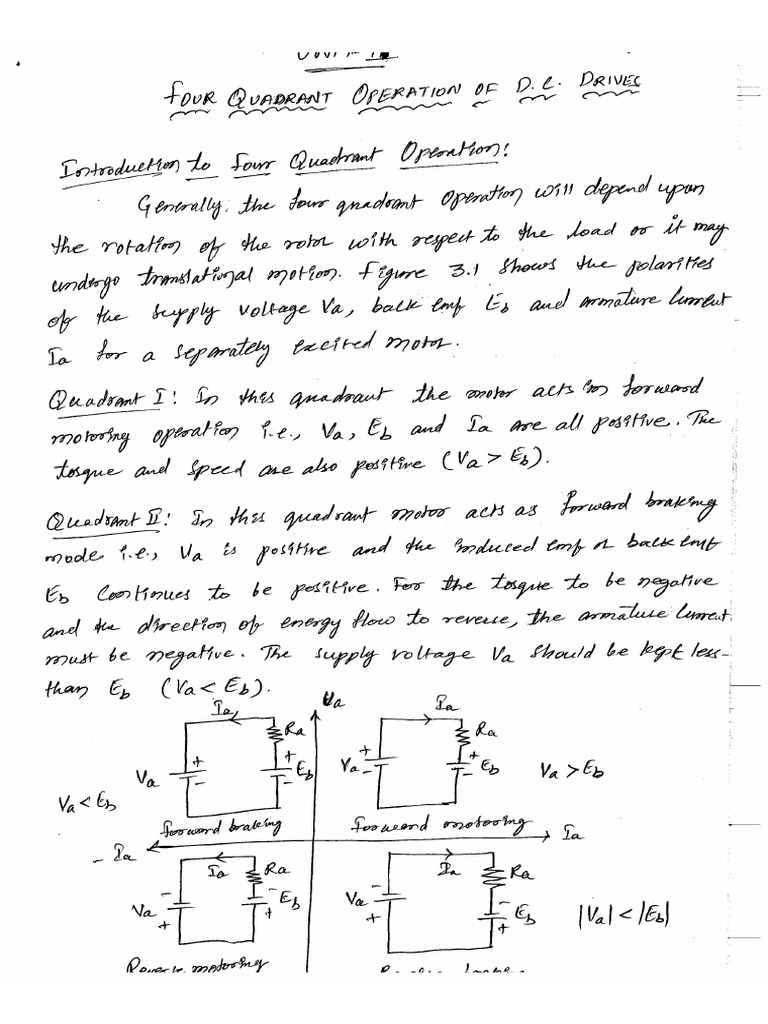 FOUR QUADRANT OPERATION OF D.C. DRIVES
Introduction to four Quadrant Operation:
Generally, the four quadrant operation will depend upon
the rotation of the rotor with respect to the load or it may
undergo translational motion. Figure 3.1 shows the polarities
of the supply voltage Va, back emf Eb and armature current
Ia for a separately excited motor.
Quadrant I: In this quadrant the motor acts in forward
motoring operation i.e., Va, Eb and Ia are all positive. The
torque and speed are also positive (Va > Eb).
Quadrant II: In this quadrant motor acts as forward braking
mode i.e., Va is positive and the induced emf or back emf
Eb continues to be positive. For the torque to be negative
and the direction of energy flow to reverse, the armature current
must be negative. The supply voltage Va should be kept less-
than Eb (Va < Eb).
Ia Va Ia
Ra Ra
Va + - + - Eb Va + - + - Eb Va > Eb
Va < Eb
forward braking forward motoring
- Ia Ia
Ia Ra Ia Ra
Va - + - + Eb Va - + - + Eb |Va| < |Eb|
Reverse motoring